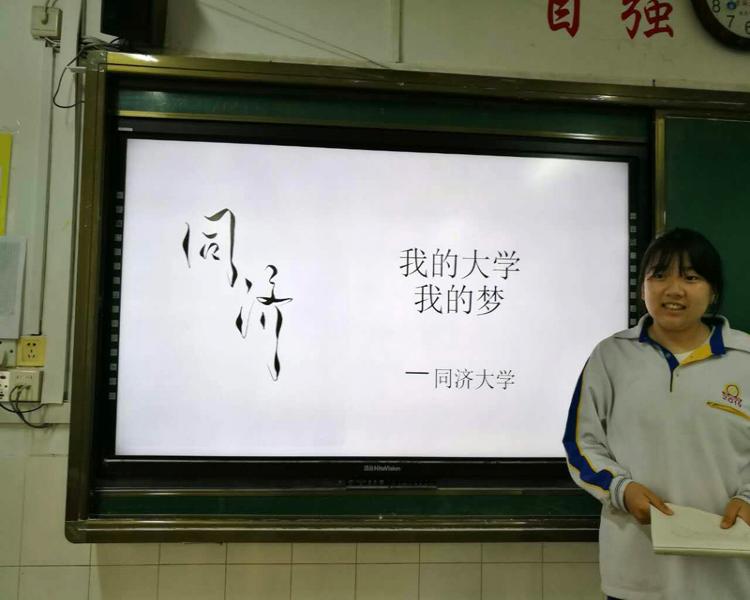 自强
同济
我的大学
我的梦
—同济大学
HiteVision